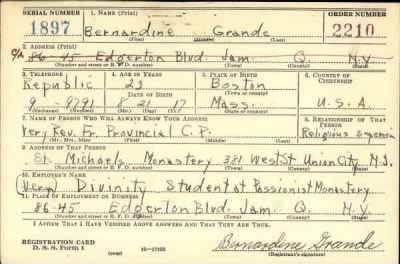 SERIAL NUMBER 1. NAME (Print) ORDER NUMBER
1897 Bernardine Grande 2210
(First) (Middle) (Last)
2. ADDRESS (Print)
C/A 86-45 Edgerton Blvd. Jam. Q. N.Y.
(Number and street or R. F. D. number) (Town) (County) (State)
3. TELEPHONE 4. AGE IN YEARS 5. PLACE OF BIRTH 6. COUNTRY OF CITIZENSHIP
Republic 23 Boston
DATE OF BIRTH
9-9791 8 21 17 Mass. U.S.A.
(Exchange) (Number) (Mo.) (Day) (Yr.) (State or country)
7. NAME OF PERSON WHO WILL ALWAYS KNOW YOUR ADDRESS 8. RELATIONSHIP OF THAT PERSON
Very Rev. Fr. Provincial C.P. Religious
(Mr., Mrs., Miss) (First) (Middle) (Last)
9. ADDRESS OF THAT PERSON
St. Michaels Monastery 381 West St Union City N.J.
(Number and street or R. F. D. number) (Town) (County) (State)
10. EMPLOYER'S NAME
Divinity Student at Passionist Monastery
11. PLACE OF EMPLOYMENT OR BUSINESS
86-45 Edgerton Blvd. Jam. Q. N.Y.
(Number and street or R. F. D. number) (Town) (County) (State)
I AFFIRM THAT I HAVE VERIFIED ABOVE ANSWERS AND THAT THEY ARE TRUE.
REGISTRATION CARD
D. S. S. Form 1 Bernardine Grande
(Registrant's signature)